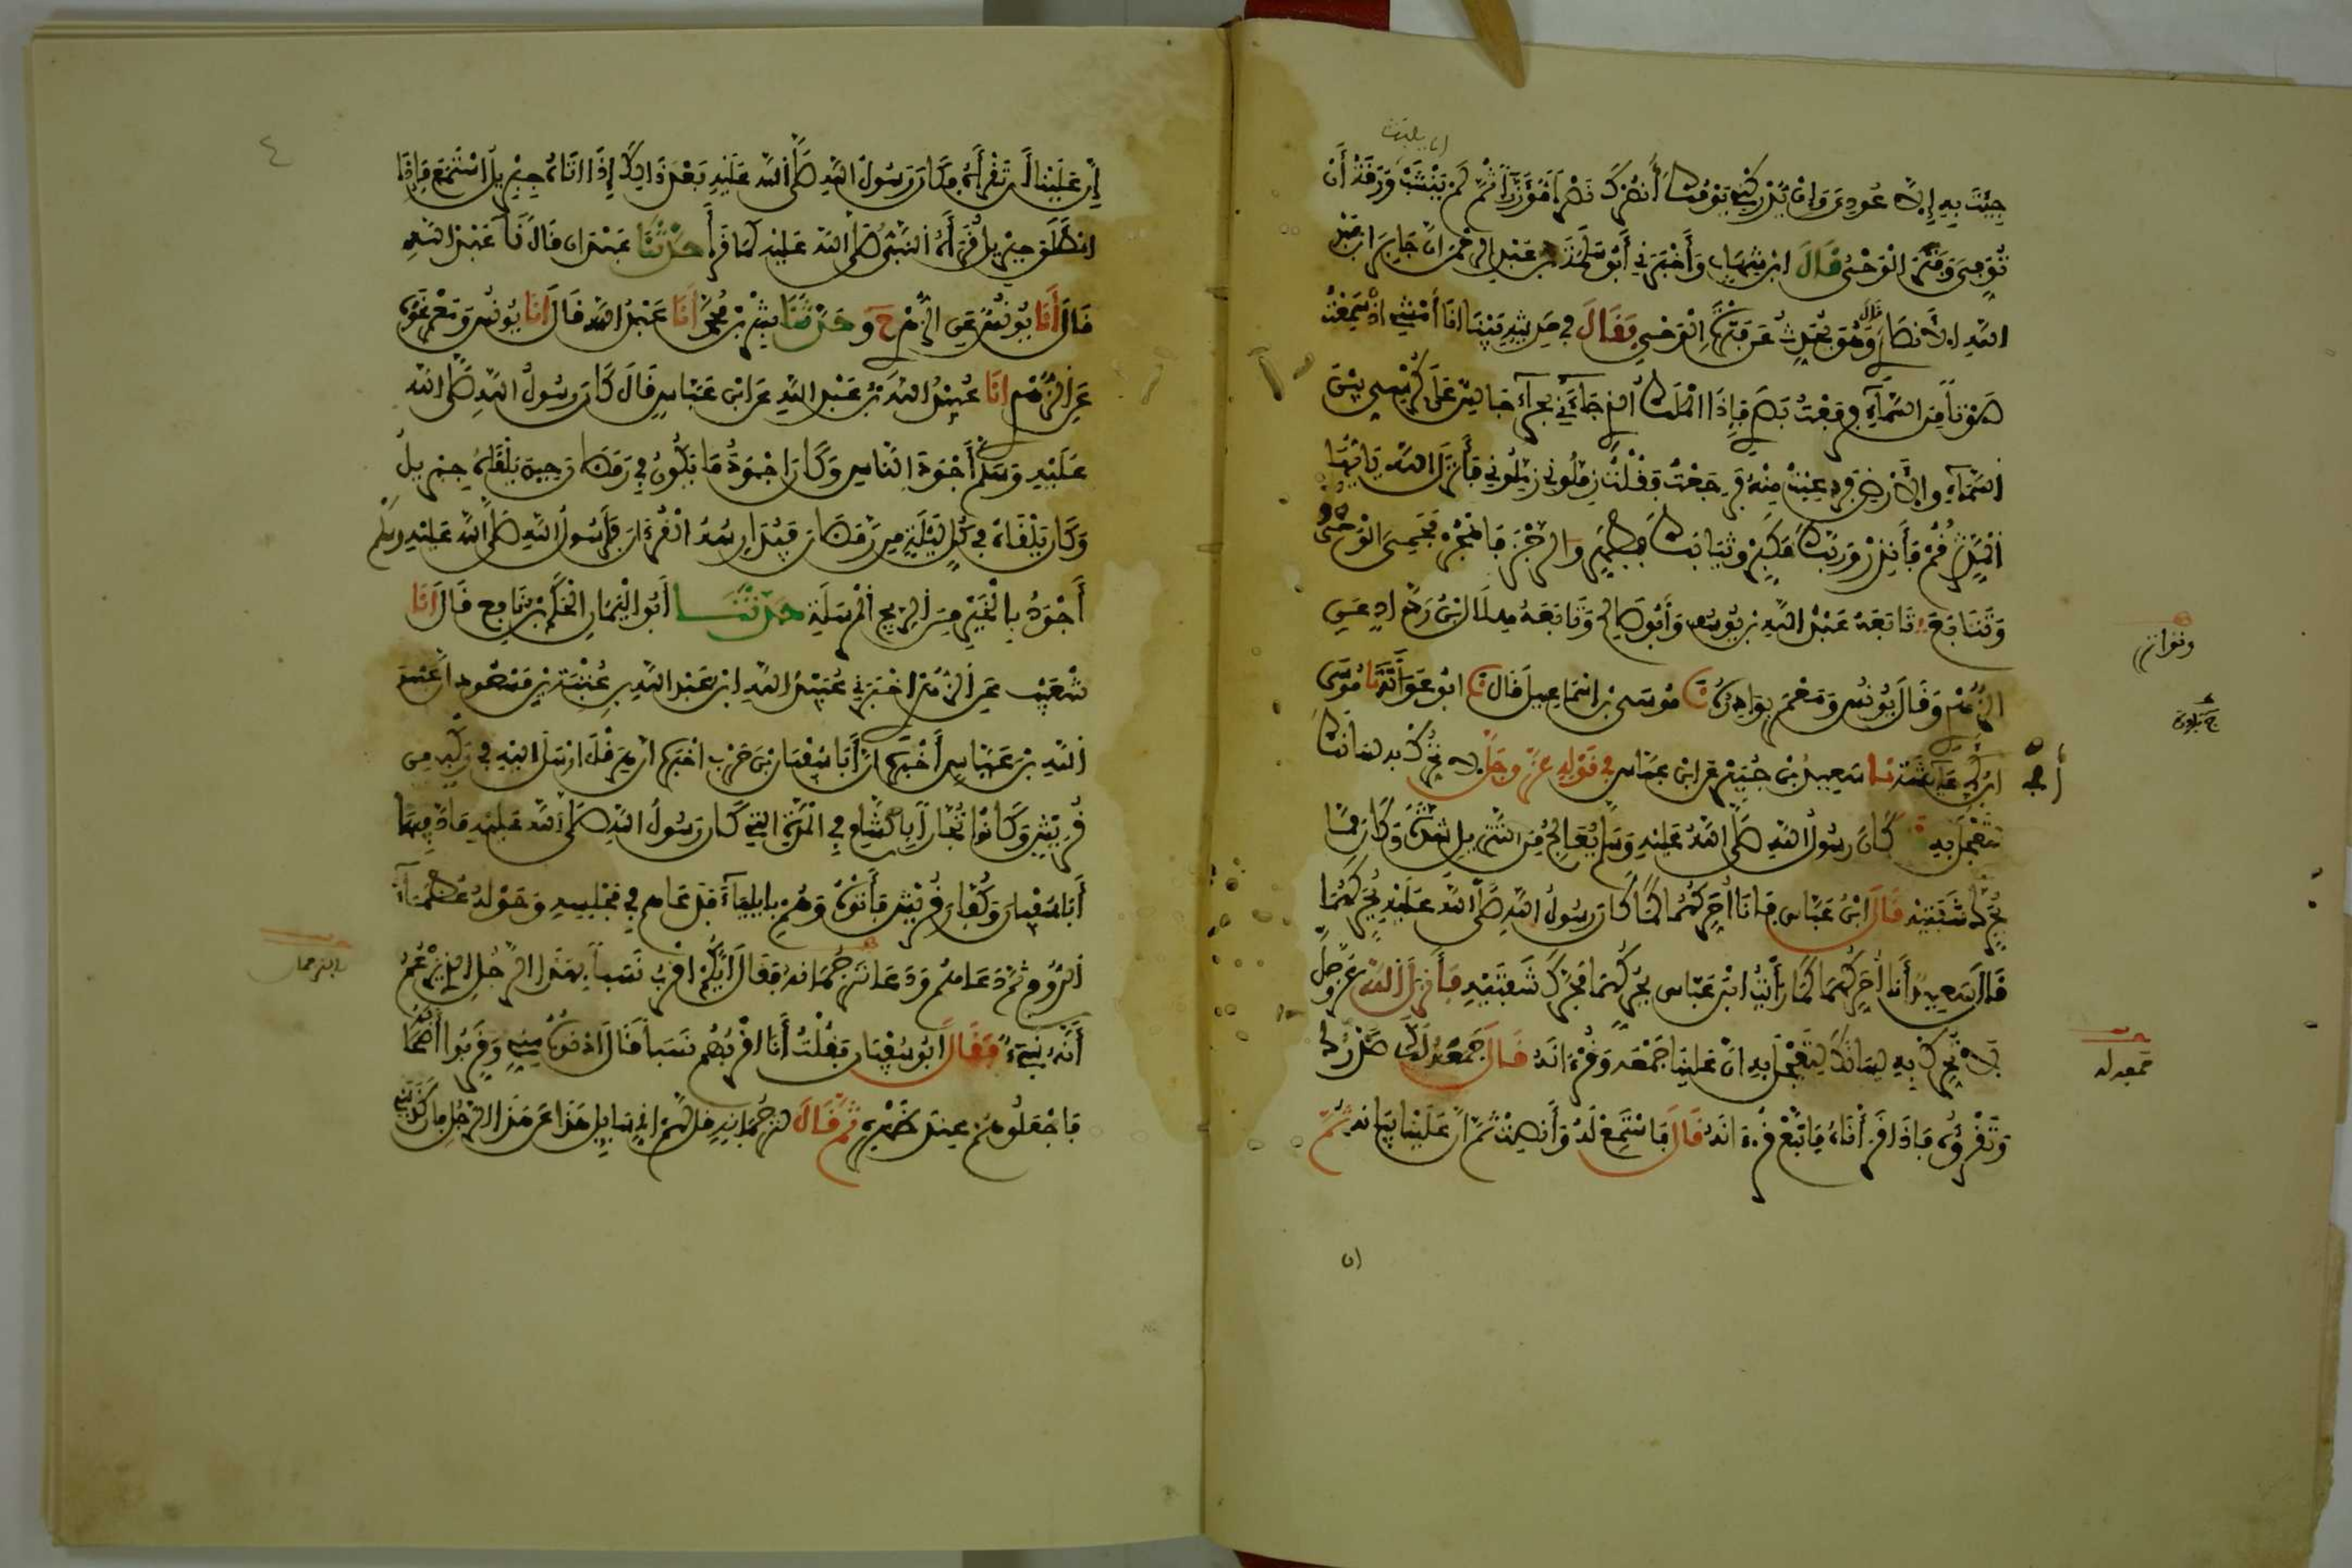 جِئْتَ بِهِ إِلَّا عُودِيَ وَإِنْ يُدْرِكْنِي يَوْمُكَ أَنْصُرْكَ نَصْرًا مُؤَزَّرًا ثُمَّ لَمْ يَنْشَبْ وَرَقَةُ أَنْ
تُوُفِّيَ وَفَتَرَ الْوَحْيُ قَالَ ابْنُ شِهَابٍ وَأَخْبَرَنِي أَبُو سَلَمَةَ بْنُ عَبْدِ الرَّحْمَنِ أَنَّ جَابِرَ ابْنَ عَبْدِ
اللَّهِ الْأَنْصَارِيَّ قَالَ وَهُوَ يُحَدِّثُ عَنْ فَتْرَةِ الْوَحْيِ فَقَالَ فِي حَدِيثِهِ بَيْنَا أَنَا أَمْشِي إِذْ سَمِعْتُ
صَوْتًا مِنَ السَّمَاءِ فَرَفَعْتُ بَصَرِي فَإِذَا الْمَلَكُ الَّذِي جَاءَنِي بِحِرَاءٍ جَالِسٌ عَلَى كُرْسِيٍّ بَيْنَ
السَّمَاءِ وَالْأَرْضِ فَرُعِبْتُ مِنْهُ فَرَجَعْتُ فَقُلْتُ زَمِّلُونِي زَمِّلُونِي فَأَنْزَلَ اللَّهُ يَا أَيُّهَا
الْمُدَّثِّرُ قُمْ فَأَنْذِرْ وَرَبَّكَ فَكَبِّرْ وَثِيَابَكَ فَطَهِّرْ وَالرُّجْزَ فَاهْجُرْ فَحَمِيَ الْوَحْيُ
وَتَتَابَعَ تَابَعَهُ عَبْدُ اللَّهِ بْنُ يُوسُفَ وَأَبُو صَالِحٍ وَتَابَعَهُ هِلَالُ بْنُ رَدَّادٍ عَنِ
الزُّهْرِيِّ وَقَالَ يُونُسُ وَمَعْمَرٌ بَوَادِرُهُ نا مُوسَى بْنُ إِسْمَاعِيلَ قَالَ نا أَبُو عَوَانَةَ نا مُوسَى
ابْنُ أَبِي عَائِشَةَ نا سَعِيدُ بْنُ جُبَيْرٍ عَنِ ابْنِ عَبَّاسٍ فِي قَوْلِهِ عَزَّ وَجَلَّ لَا تُحَرِّكْ بِهِ لِسَانَكَ
لِتَعْجَلَ بِهِ كَانَ رَسُولُ اللَّهِ صَلَّى اللَّهُ عَلَيْهِ وَسَلَّمَ يُعَالِجُ مِنَ التَّنْزِيلِ شِدَّةً وَكَانَ مِمَّا
يُحَرِّكُ شَفَتَيْهِ فَقَالَ ابْنُ عَبَّاسٍ فَأَنَا أُحَرِّكُهُمَا كَمَا كَانَ رَسُولُ اللَّهِ صَلَّى اللَّهُ عَلَيْهِ يُحَرِّكُهُمَا
قَالَ سَعِيدٌ أَنَا أُحَرِّكُهُمَا كَمَا رَأَيْتُ ابْنَ عَبَّاسٍ يُحَرِّكُهُمَا فَحَرَّكَ شَفَتَيْهِ فَأَنْزَلَ اللَّهُ عَزَّ وَجَلَّ
لَا تُحَرِّكْ بِهِ لِسَانَكَ لِتَعْجَلَ بِهِ إِنَّ عَلَيْنَا جَمْعَهُ وَقُرْآنَهُ قَالَ جَمْعُهُ لَكَ صَدْرُكَ
وَتَقْرَؤُهُ فَإِذَا قَرَأْنَاهُ فَاتَّبِعْ قُرْآنَهُ قَالَ فَاسْتَمِعْ لَهُ وَأَنْصِتْ ثُمَّ إِنَّ عَلَيْنَا بَيَانَهُ ثُمَّ
وتواتر
جمعه له
إن علينا
٤
إِنَّ عَلَيْنَا أَنْ تَقْرَأَهُ فَكَانَ رَسُولُ اللَّهِ صَلَّى اللَّهُ عَلَيْهِ بَعْدَ ذَلِكَ إِذَا أَتَاهُ جِبْرِيلُ اسْتَمَعَ فَإِذَا
انْطَلَقَ جِبْرِيلُ قَرَأَهُ النَّبِيُّ صَلَّى اللَّهُ عَلَيْهِ كَمَا قَرَأَ حَدَّثَنَا عَبْدَانُ قَالَ نَا عَبْدُ اللَّهِ
قَالَ أَنَا يُونُسُ عَنِ الزُّهْرِيِّ ح وَحَدَّثَنَا بِشْرُ بْنُ مُحَمَّدٍ أَنَا عَبْدُ اللَّهِ قَالَ أَنَا يُونُسُ وَمَعْمَرٌ نَحْوَهُ
عَنِ الزُّهْرِيِّ أَنَا عُبَيْدُ اللَّهِ بْنُ عَبْدِ اللَّهِ عَنِ ابْنِ عَبَّاسٍ قَالَ كَانَ رَسُولُ اللَّهِ صَلَّى اللَّهُ
عَلَيْهِ وَسَلَّمَ أَجْوَدَ النَّاسِ وَكَانَ أَجْوَدُ مَا يَكُونُ فِي رَمَضَانَ حِينَ يَلْقَاهُ جِبْرِيلُ
وَكَانَ يَلْقَاهُ فِي كُلِّ لَيْلَةٍ مِنْ رَمَضَانَ فَيُدَارِسُهُ الْقُرْآنَ فَلَرَسُولُ اللَّهِ صَلَّى اللَّهُ عَلَيْهِ وَسَلَّمَ
أَجْوَدُ بِالْخَيْرِ مِنَ الرِّيحِ الْمُرْسَلَةِ حَدَّثَنَا أَبُو الْيَمَانِ الْحَكَمُ بْنُ نَافِعٍ قَالَ أَنَا
شُعَيْبٌ عَنِ الزُّهْرِيِّ أَخْبَرَنِي عُبَيْدُ اللَّهِ ابْنُ عَبْدِ اللَّهِ بْنِ عُتْبَةَ بْنِ مَسْعُودٍ أَنَّ عَبْدَ
اللَّهِ بْنَ عَبَّاسٍ أَخْبَرَهُ أَنَّ أَبَا سُفْيَانَ بْنَ حَرْبٍ أَخْبَرَهُ أَنَّ هِرَقْلَ أَرْسَلَ إِلَيْهِ فِي رَكْبٍ مِنْ
قُرَيْشٍ وَكَانُوا تُجَّارًا بِالشَّامِ فِي الْمُدَّةِ الَّتِي كَانَ رَسُولُ اللَّهِ صَلَّى اللَّهُ عَلَيْهِ مَادَّ فِيهَا
أَبَا سُفْيَانَ وَكُفَّارَ قُرَيْشٍ فَأَتَوْهُ وَهُمْ بِإِيلِيَاءَ فَدَعَاهُمْ فِي مَجْلِسِهِ وَحَوْلَهُ عُظَمَاءُ
الرُّومِ ثُمَّ دَعَاهُمْ وَدَعَا تَرْجُمَانَهُ فَقَالَ أَيُّكُمْ أَقْرَبُ نَسَبًا بِهَذَا الرَّجُلِ الَّذِي يَزْعُمُ
أَنَّهُ نَبِيٌّ فَقَالَ أَبُو سُفْيَانَ فَقُلْتُ أَنَا أَقْرَبُهُمْ نَسَبًا فَقَالَ أَدْنُوهُ مِنِّي وَقَرِّبُوا أَصْحَابَهُ
فَاجْعَلُوهُمْ عِنْدَ ظَهْرِهِ ثُمَّ قَالَ لِتَرْجُمَانِهِ قُلْ لَهُمْ إِنِّي سَائِلٌ هَذَا عَنْ هَذَا الرَّجُلِ فَإِنْ كَذَبَنِي